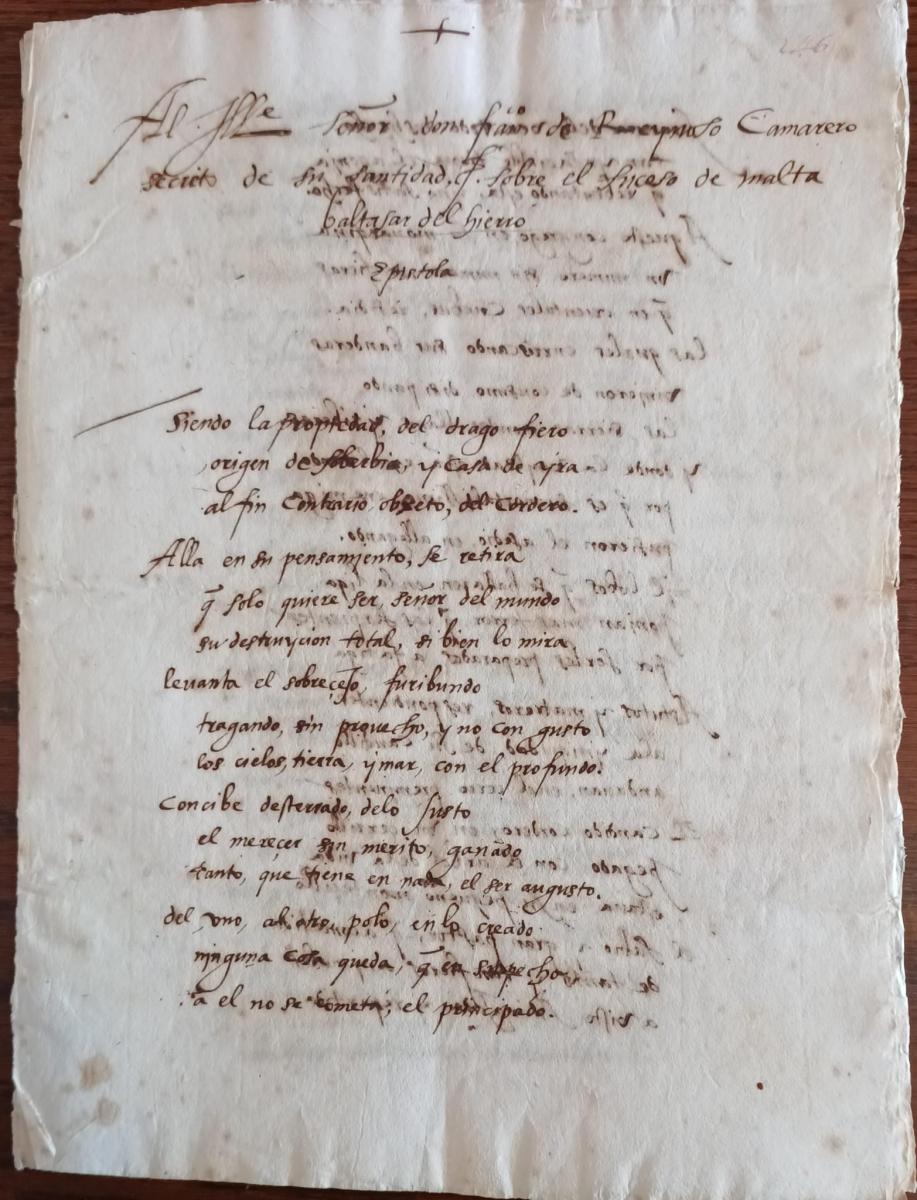 Al Ille señor don franco de Reynoso Camarero
secreto de su santidad. sobre el suceso de malta
baltasar del hierro
Epistola
Siendo la propiedad, del drago fiero
origen de soberbia, y casa de yra
al fin contrario, obgeto, del cordero.
Alla en su pensamiento, se retira
q̃ solo quiere ser, señor del mundo
su destruycion total, si bien lo mira
levanta el sobreçejo, furibundo
tragando, sin provecho, y no con gusto
los cielos, tierra, y mar, con el profundo.
Concibe desterrado, delo Justo
el mereçer sin merito, ganado
tanto, que tiene en nada, el ser augusto.
del uno, al otro, polo, en lo creado
ninguna cosa queda, q̃ en su pecho
a el no se cometa, el principado.